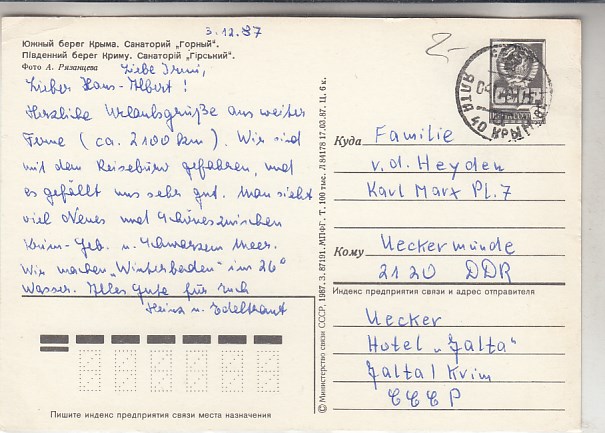 3.12.87
2-
Южный берег Крыма. Санаторий „Горный".
Південний берег Криму. Санаторій „Гірський".
Фото А. Рязанцева
Liebe Irmi,
Lieber Hans-Albert!
Herzliche Urlaubsgrüße aus weiter
Ferne (ca. 2100 km). Wir sind
mit dem Reisebüro gefahren, und
es gefällt uns sehr gut. Man sieht
viel Neues und Schönes zwischen
Krim-Geb. u. Schwarzem Meer.
Wir machen „Winterbaden" im 26°
Wasser. Alles Gute für Euch
Heinz u. Edeltraut
Пишите индекс предприятия связи места назначения
© Министерство связи СССР, 1987. З. 87191. МПФГ. Т. 100 тыс. Л 84178 17.06.87. Ц. 6 к.
ЯЛТА
КРЫМ
Куда Familie
v. d. Heyden
Karl Marx Pl. 7
Кому Ueckermünde
2120 DDR
Индекс предприятия связи и адрес отправителя
Uecker
Hotel „Jalta"
Jalta/Krim
СССР